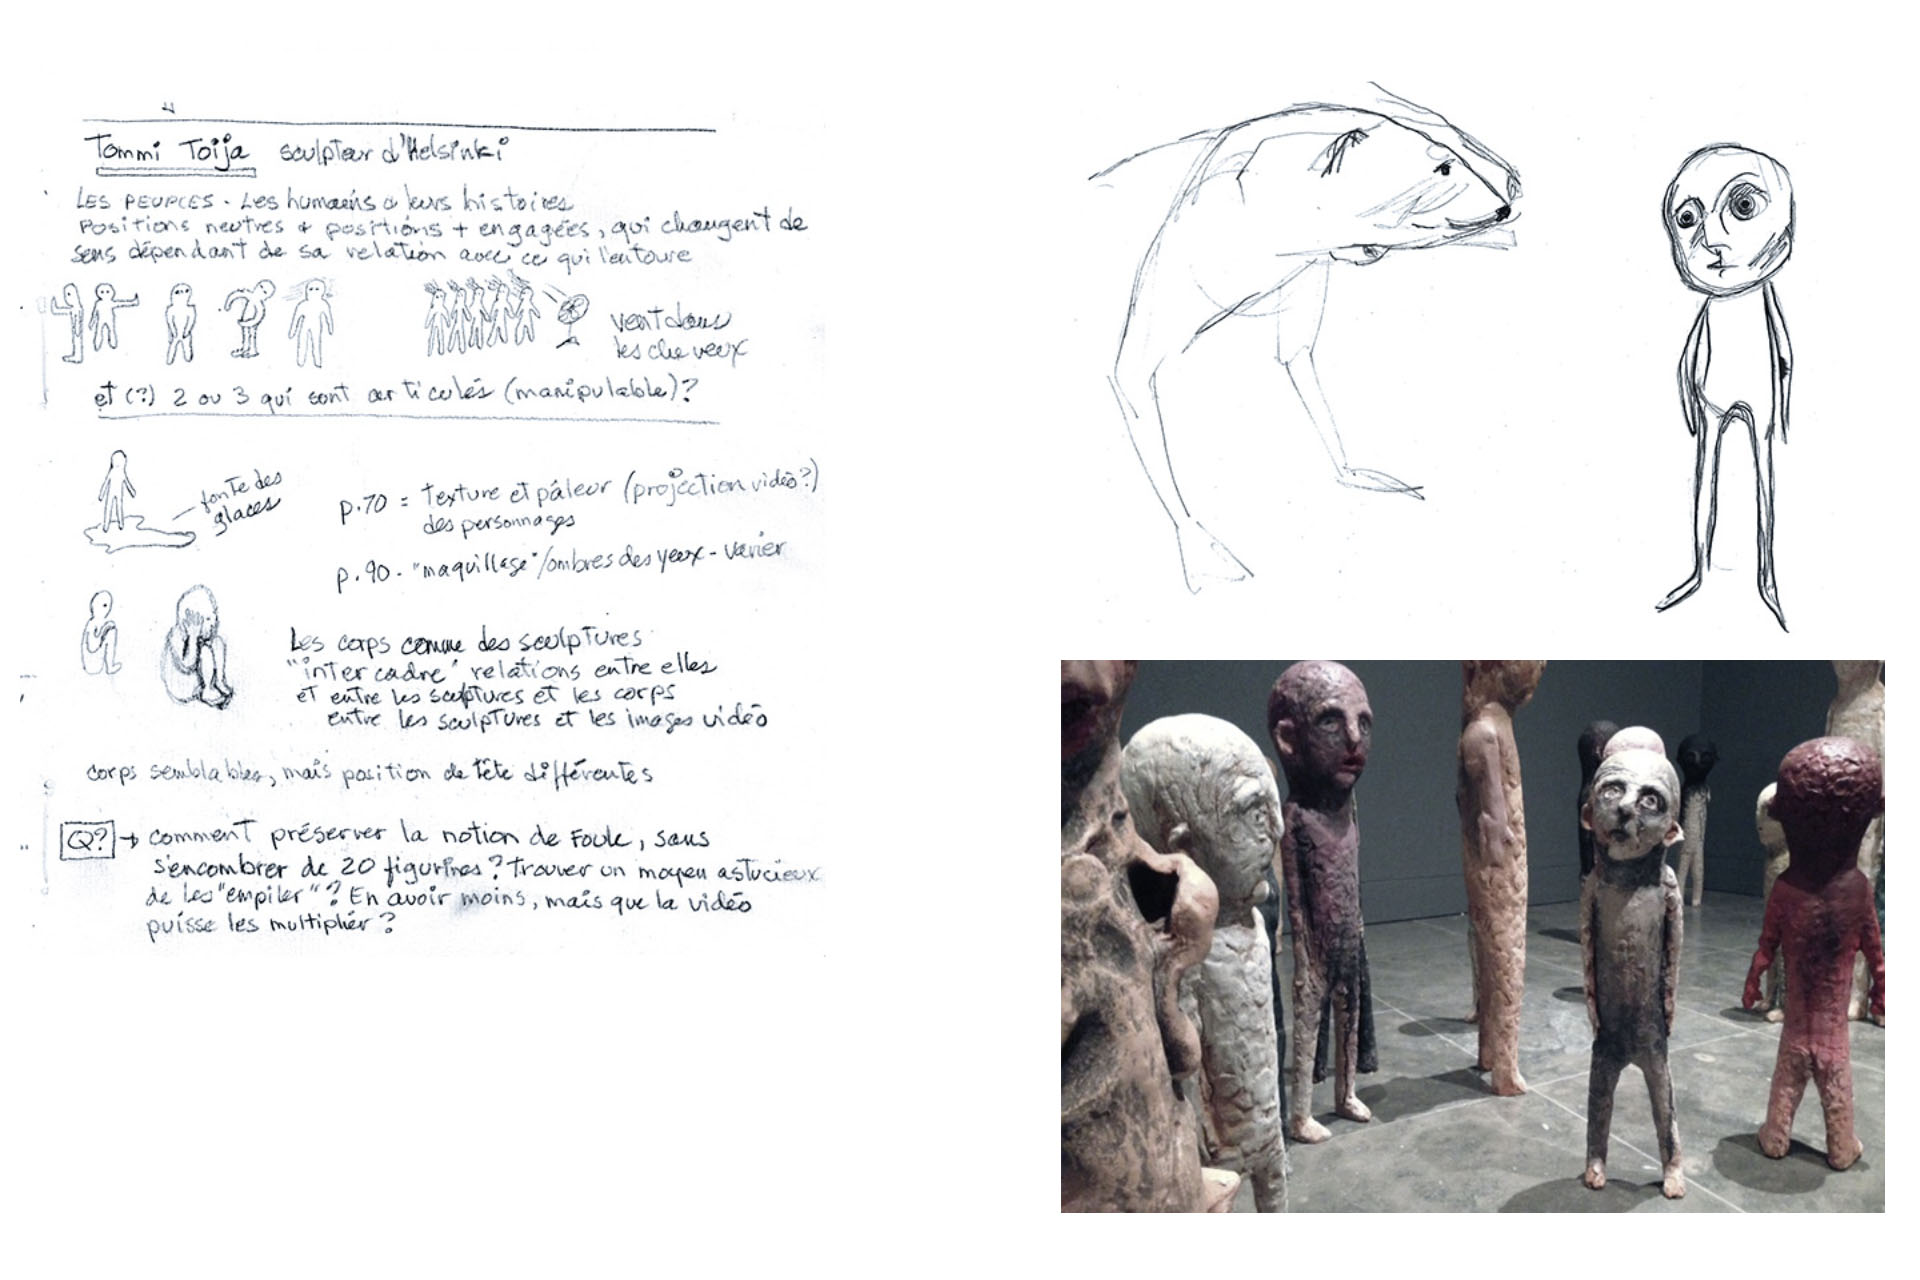 Tommi Toija sculpteur d'Helsinki
LES PEUPLES - Les humains & leurs histoires
Positions neutres & positions + engagées, qui changent de
sens dépendant de sa relation avec ce qui l'entoure
vent dans
les cheveux
et (?) 2 ou 3 qui sont articulés (manipulable)?
fonte des
glaces
p.70 = texture et pâleur (projection vidéo?)
des personnages
p.90 - "maquillage"/ombres des yeux - varier
Les corps comme des sculptures
"inter cadre" relations entre elles
et entre les sculptures et les corps
entre les sculptures et les images vidéo
corps semblables, mais position de tête différentes
Q? → comment préserver la notion de Foule, sans
s'encombrer de 20 figurines? Trouver un moyen astucieux
de les "empiler"? En avoir moins, mais que la vidéo
puisse les multiplier?